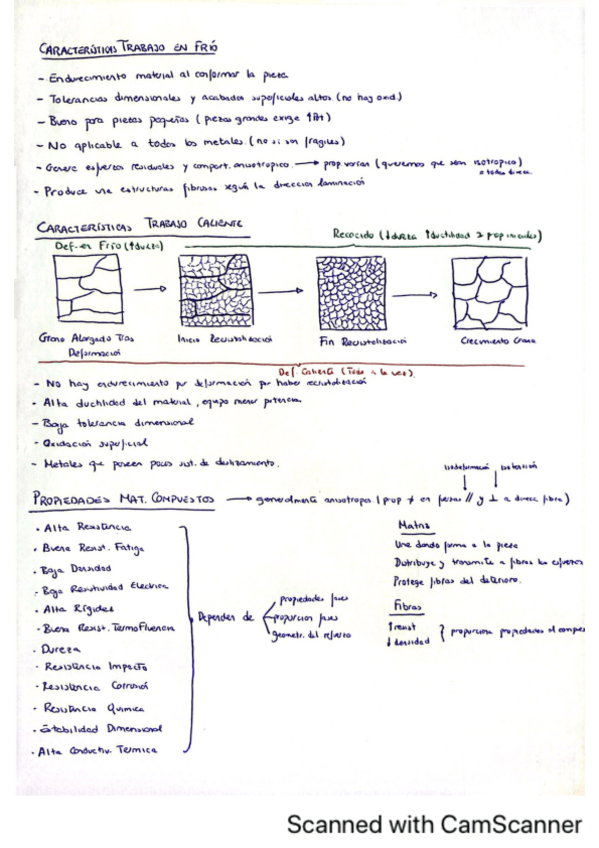 CARACTERÍSTICAS TRABAJO EN FRÍO
- Endurecimiento material al conformar la pieza.
- Tolerancias dimensionales y acabados superficiales altos (no hay oxid.)
- Bueno para piezas pequeñas (piezas grandes exige
- No aplicable a todos los metales. (no si son frágiles)
- Genera esfuerzos residuales y comport. anisotropico. → prop varian (queremos que sean isotropico)
- Produce una estructuras fibrosas según la direccion laminación
CARACTERÍSTICAS TRABAJO CALIENTE
Recocido (↓dureza ↑ductilidad y propiedades)
Def. en Frío (↑dureza)
Grano Alargado Tras Deformación
Inicio Recristalización
Fin Recristalización
Crecimiento Grano
Def. Caliente (Todo a la vez).
- No hay endurecimiento por deformación por haber recristalización
- Alta ductilidad del material, equipo menor potencia.
- Baja tolerancia dimensional
- Oxidación superficial
- Metales que poseen pocos sist. de deslizamiento.
PROPIEDADES MAT. COMPUESTOS → generalmente anisotropos (prop ≠ en fuerzas // y ⊥ a direcc fibra)
· Alta Resistencia
· Buena Resist. Fatiga
· Baja Densidad
· Baja Resistividad Electrica
· Alta Rigidez
· Buena Resist. TermoFluencia
· Dureza
· Resistencia Impacto
· Resistencia Corrosión
· Resistencia Quimica
· Estabilidad Dimensional
· Alta Conductiv. Termica
Dependen de
propiedades fases
proporcion fases
geometr. del refuerzo
Matriz
Une dando forma a la pieza
Distribuye y transmite a fibras los esfuerzos
Protege fibras del deterioro.
Fibras
↑resist
↓densidad
} proporciona propiedades al compues
Scanned with CamScanner